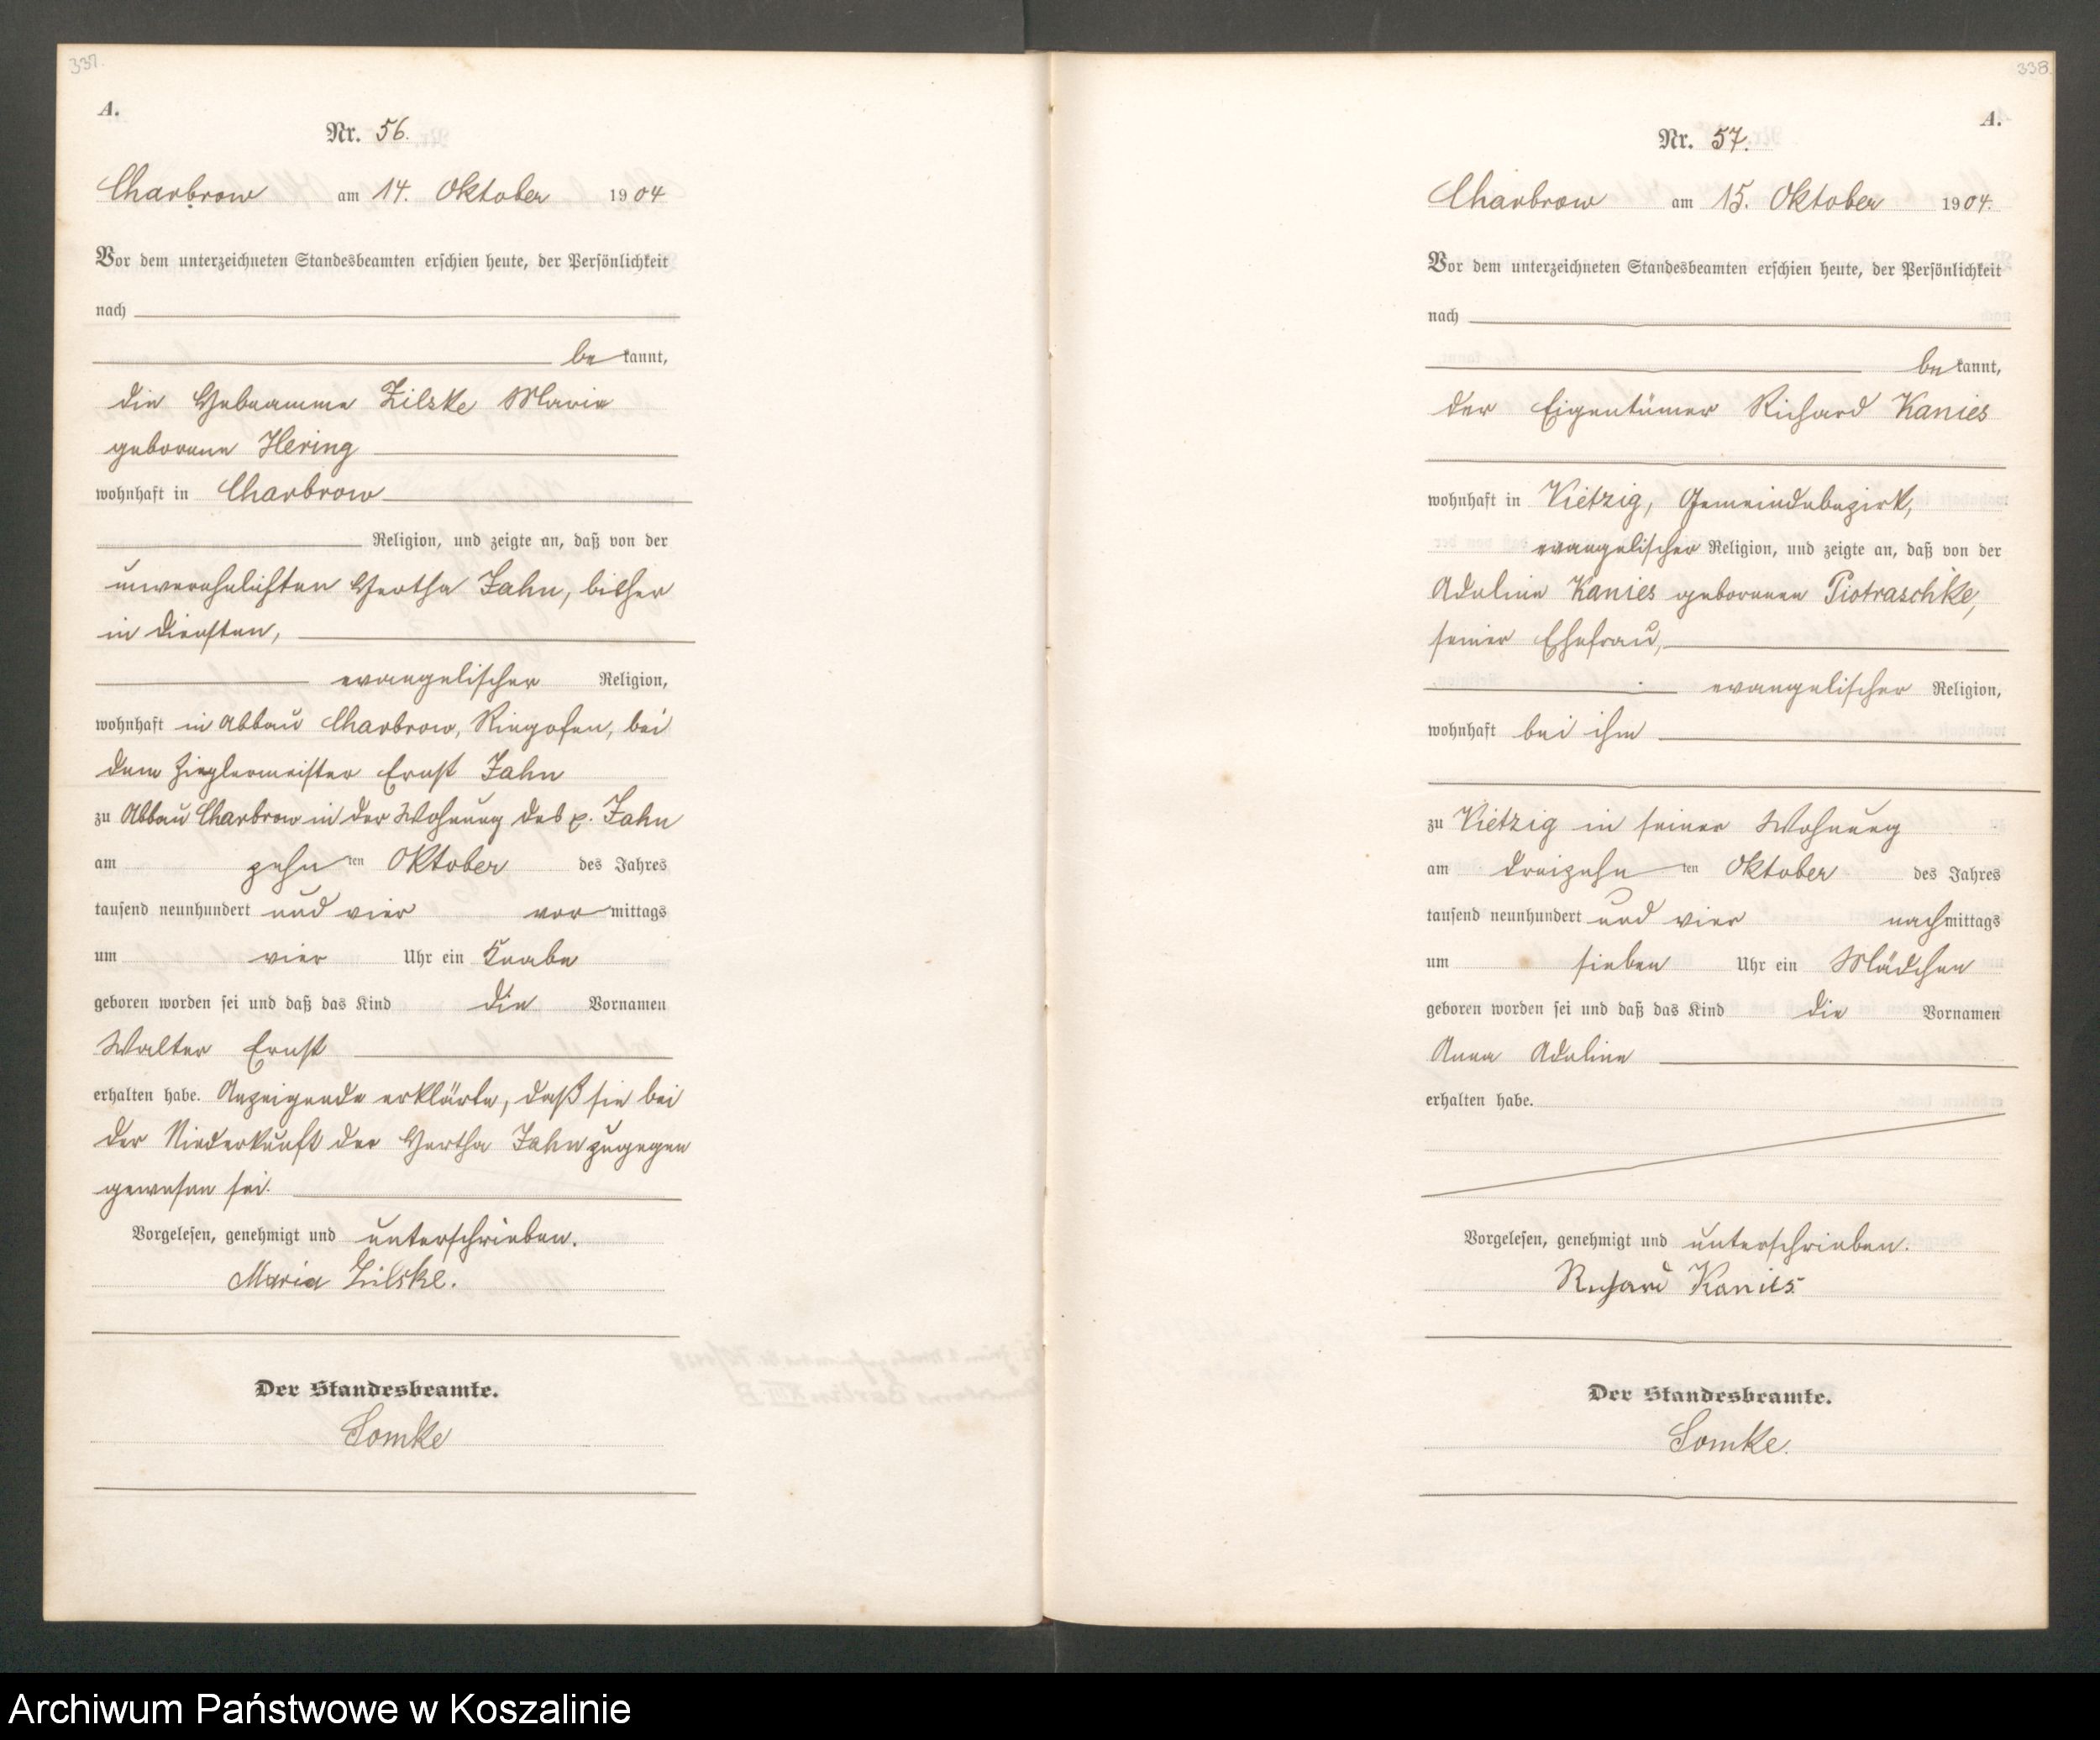 337.
A.
Nr. 56.
Charbrow am 14. Oktober 1904
Vor dem unterzeichneten Standesbeamten erschien heute, der Persönlichkeit
nach
bekannt,
die Hebeamme Zilske Marie
geborene Hering
wohnhaft in Charbrow
Religion, und zeigte an, daß von der
unverehelichten Hertha Jahn, bisher
in Diensten,
evangelischer Religion,
wohnhaft in Abbau Charbrow, Ringofen, bei
dem Zieglermeister Ernst Jahn
zu Abbau Charbrow in der Wohnung des p. Jahn
am zehnten Oktober des Jahres
tausend neunhundert und vier vormittags
um vier Uhr ein Knabe
geboren worden sei und daß das Kind die Vornamen
Walter Ernst
erhalten habe. Anzeigende erklärte, daß sie bei
der Niederkunft der Hertha Jahn zugegen
gewesen sei.
Vorgelesen, genehmigt und unterschrieben.
Maria Zilske.
Der Standesbeamte.
Lomke
338.
A.
Nr. 57.
Charbrow am 15. Oktober 1904.
Vor dem unterzeichneten Standesbeamten erschien heute, der Persönlichkeit
nach
bekannt,
der Eigentümer Richard Kanies
wohnhaft in Vietzig, Gemeindebezirk,
evangelischer Religion, und zeigte an, daß von der
Adeline Kanies geborenen Piotraschke,
seiner Ehefrau,
evangelischer Religion,
wohnhaft bei ihm
zu Vietzig in seiner Wohnung
am dreizehnten Oktober des Jahres
tausend neunhundert und vier nachmittags
um sieben Uhr ein Mädchen
geboren worden sei und daß das Kind die Vornamen
Anna Adeline
erhalten habe.
Vorgelesen, genehmigt und unterschrieben.
Richard Kanies
Der Standesbeamte.
Lomke.
Archiwum Państwowe w Koszalinie